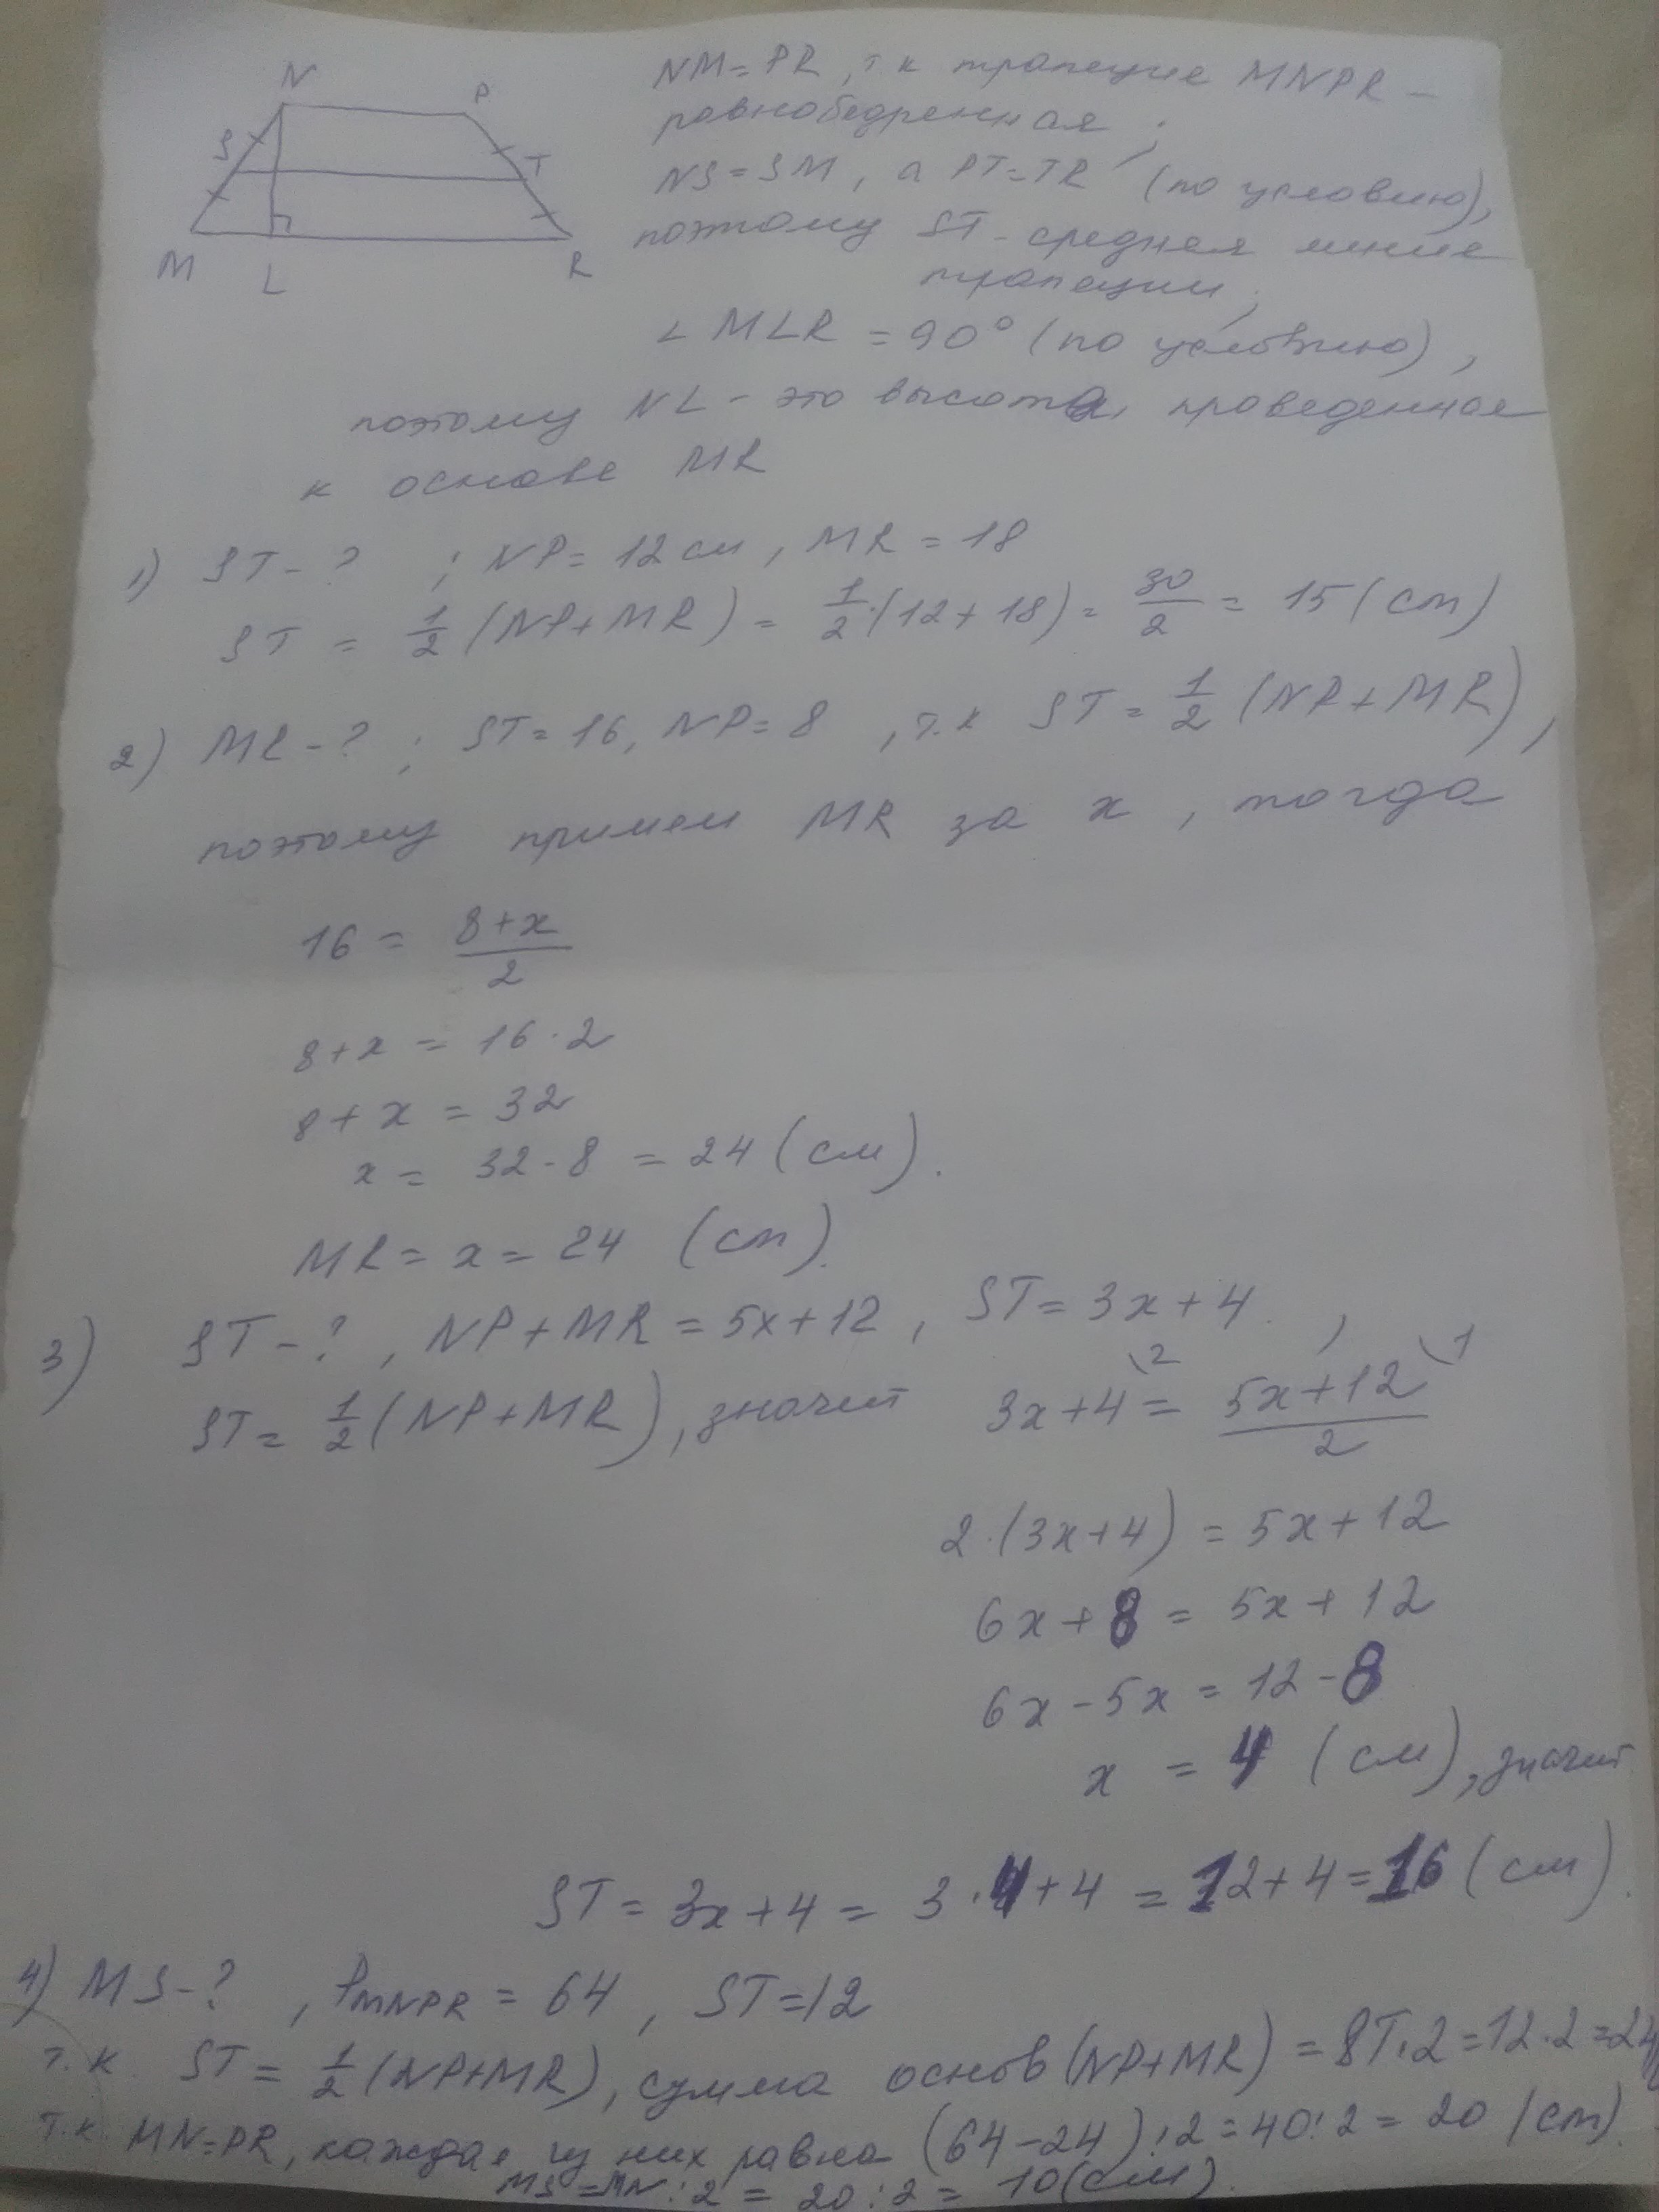 N P
S T
M L R
NM = PR, т.к трапеция MNPR –
равнобедренная;
NS = SM, а PT = TR (по условию),
поэтому ST - средняя линия
трапеции;
∠MLR = 90° (по условию),
поэтому NL - это высота, проведенная
к основе MR
1) ST - ? ; NP = 12 см, MR = 18
ST = 1/2 (NP + MR) = 1/2 · (12 + 18) = 30/2 = 15 (cm)
2) MR - ? ; ST = 16, NP = 8, т.к ST = 1/2 (NP + MR),
поэтому примем MR за x, тогда
16 = (8 + x)/2
8 + x = 16 · 2
8 + x = 32
x = 32 - 8 = 24 (см).
MR = x = 24 (cm).
3) ST - ?, NP + MR = 5x + 12, ST = 3x + 4,
ST = 1/2 (NP + MR), значит 3x + 4 \2 = (5x + 12)/2 \1
2 · (3x + 4) = 5x + 12
6x + 8 = 5x + 12
6x - 5x = 12 - 8
x = 4 (см), значит
ST = 3x + 4 = 3 · 4 + 4 = 12 + 4 = 16 (см).
4) MS - ?, PMNPR = 64, ST = 12
т.к ST = 1/2 (NP + MR), сумма основ (NP + MR) = ST · 2 = 12 · 2 = 24
т.к. MN = PR, каждая из них равна (64 - 24) : 2 = 40 : 2 = 20 (cm).
MS = MN : 2 = 20 : 2 = 10 (см).